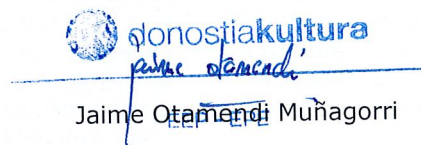 donostiakultura
jaime otamendi
Jaime Otamendi Muñagorri
EEP - EPE